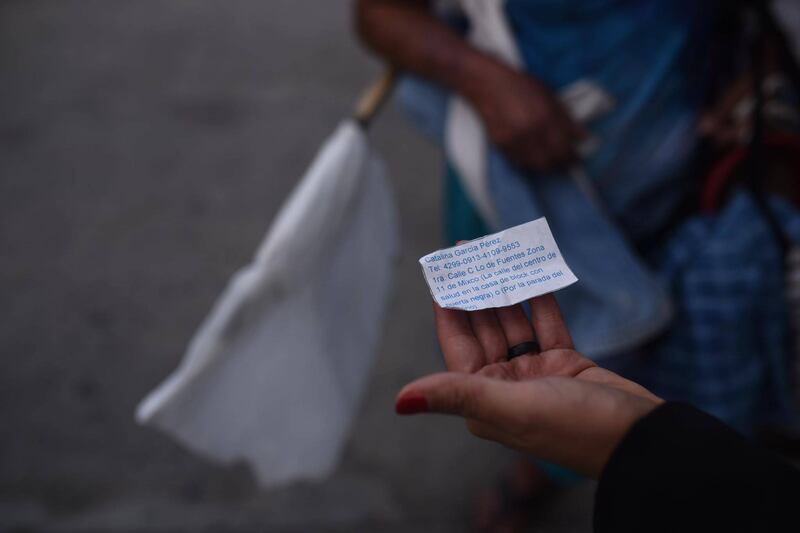 Catalina García Pérez
Tel: 4299-0913-4109-9553
1ra. Calle C Lo de Fuentes Zona
11 de Mixco (La calle del centro de
salud en la casa de block con
puerta negra) o (Por la parada del